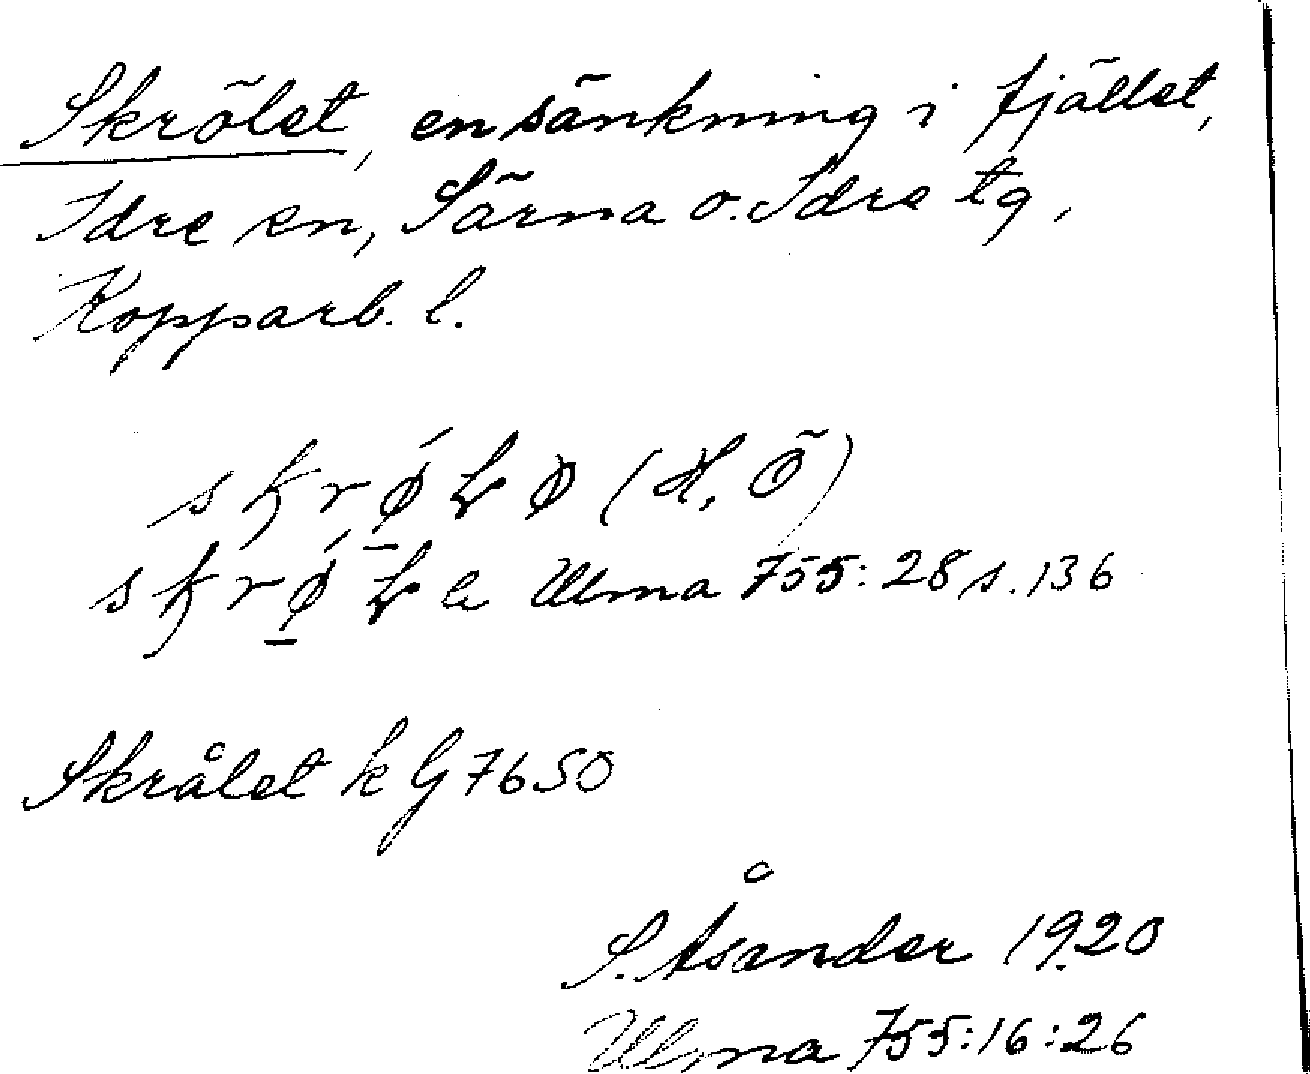 Skrölet, en sänkning i fjället,
Idre sn, Särna o. Idre tg,
Kopparb. l.
Ulma 755:28 s. 136
Skrålet k G 7650
S. Åsander 1920
Ulma 755:16:26